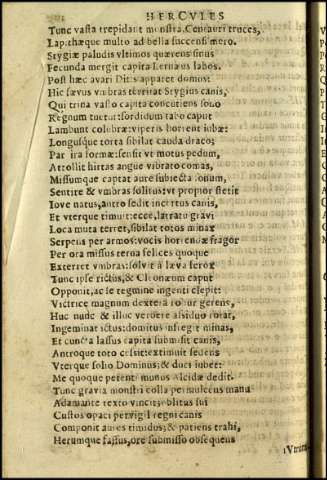 HERCVLES
Tunc vasta trepidant monstra. Centauri truces,
Lapithæque multo ad bella succensi mero.
Stygiæ paludis vltimos quærens sinus
Fecunda mergit capita Lernæus labos.
Post hæc avari Ditis apparet domus:
Hic sævus vmbras territat Stygius canis,
Qui trina vasto capita concutiens sono
Regnum tuetur: sordidum tabo caput
Lambunt colubræ: viperis horrent iubæ:
Longusque torta sibilat cauda draco;
Par ira formæ: sensit vt motus pedum,
Attollit hirtas angue vibrato comas,
Missumque captat aure subiecta sonum,
Sentire & vmbras solitus: vt propior stetit
Iove natus, antro sedit incertus canis,
Et vterque timuit: ecce, latratu gravi
Loca muta terret, sibilat totos minax
Serpens per armos: vocis horrendæ fragor
Per ora missus terna felices quoque
Exterret vmbras: solvit à læva ferox
Tunc ipse rictus, & Cleonæum caput
Opponit, ac se tegmine ingenti clepit:
Victrice magnum dextera robur gerens,
Huc nunc & illuc verbere assiduo rotat,
Ingeminat ictus: domitus infregit minas,
Et cuncta lassus capita submisit canis,
Antroque toto cessit: extimuit sedens
Vterque solio Dominus; & duci iubet:
Me quoque petenti munus Alcidæ dedit.
Tunc gravia monstri colla permulcens manu
Adamante texto vincit: oblitus sui
Custos opaci pervigil regni canis
Componit aures timidus; & patiens trahi,
Herumque fassus, ore submisso obsequens